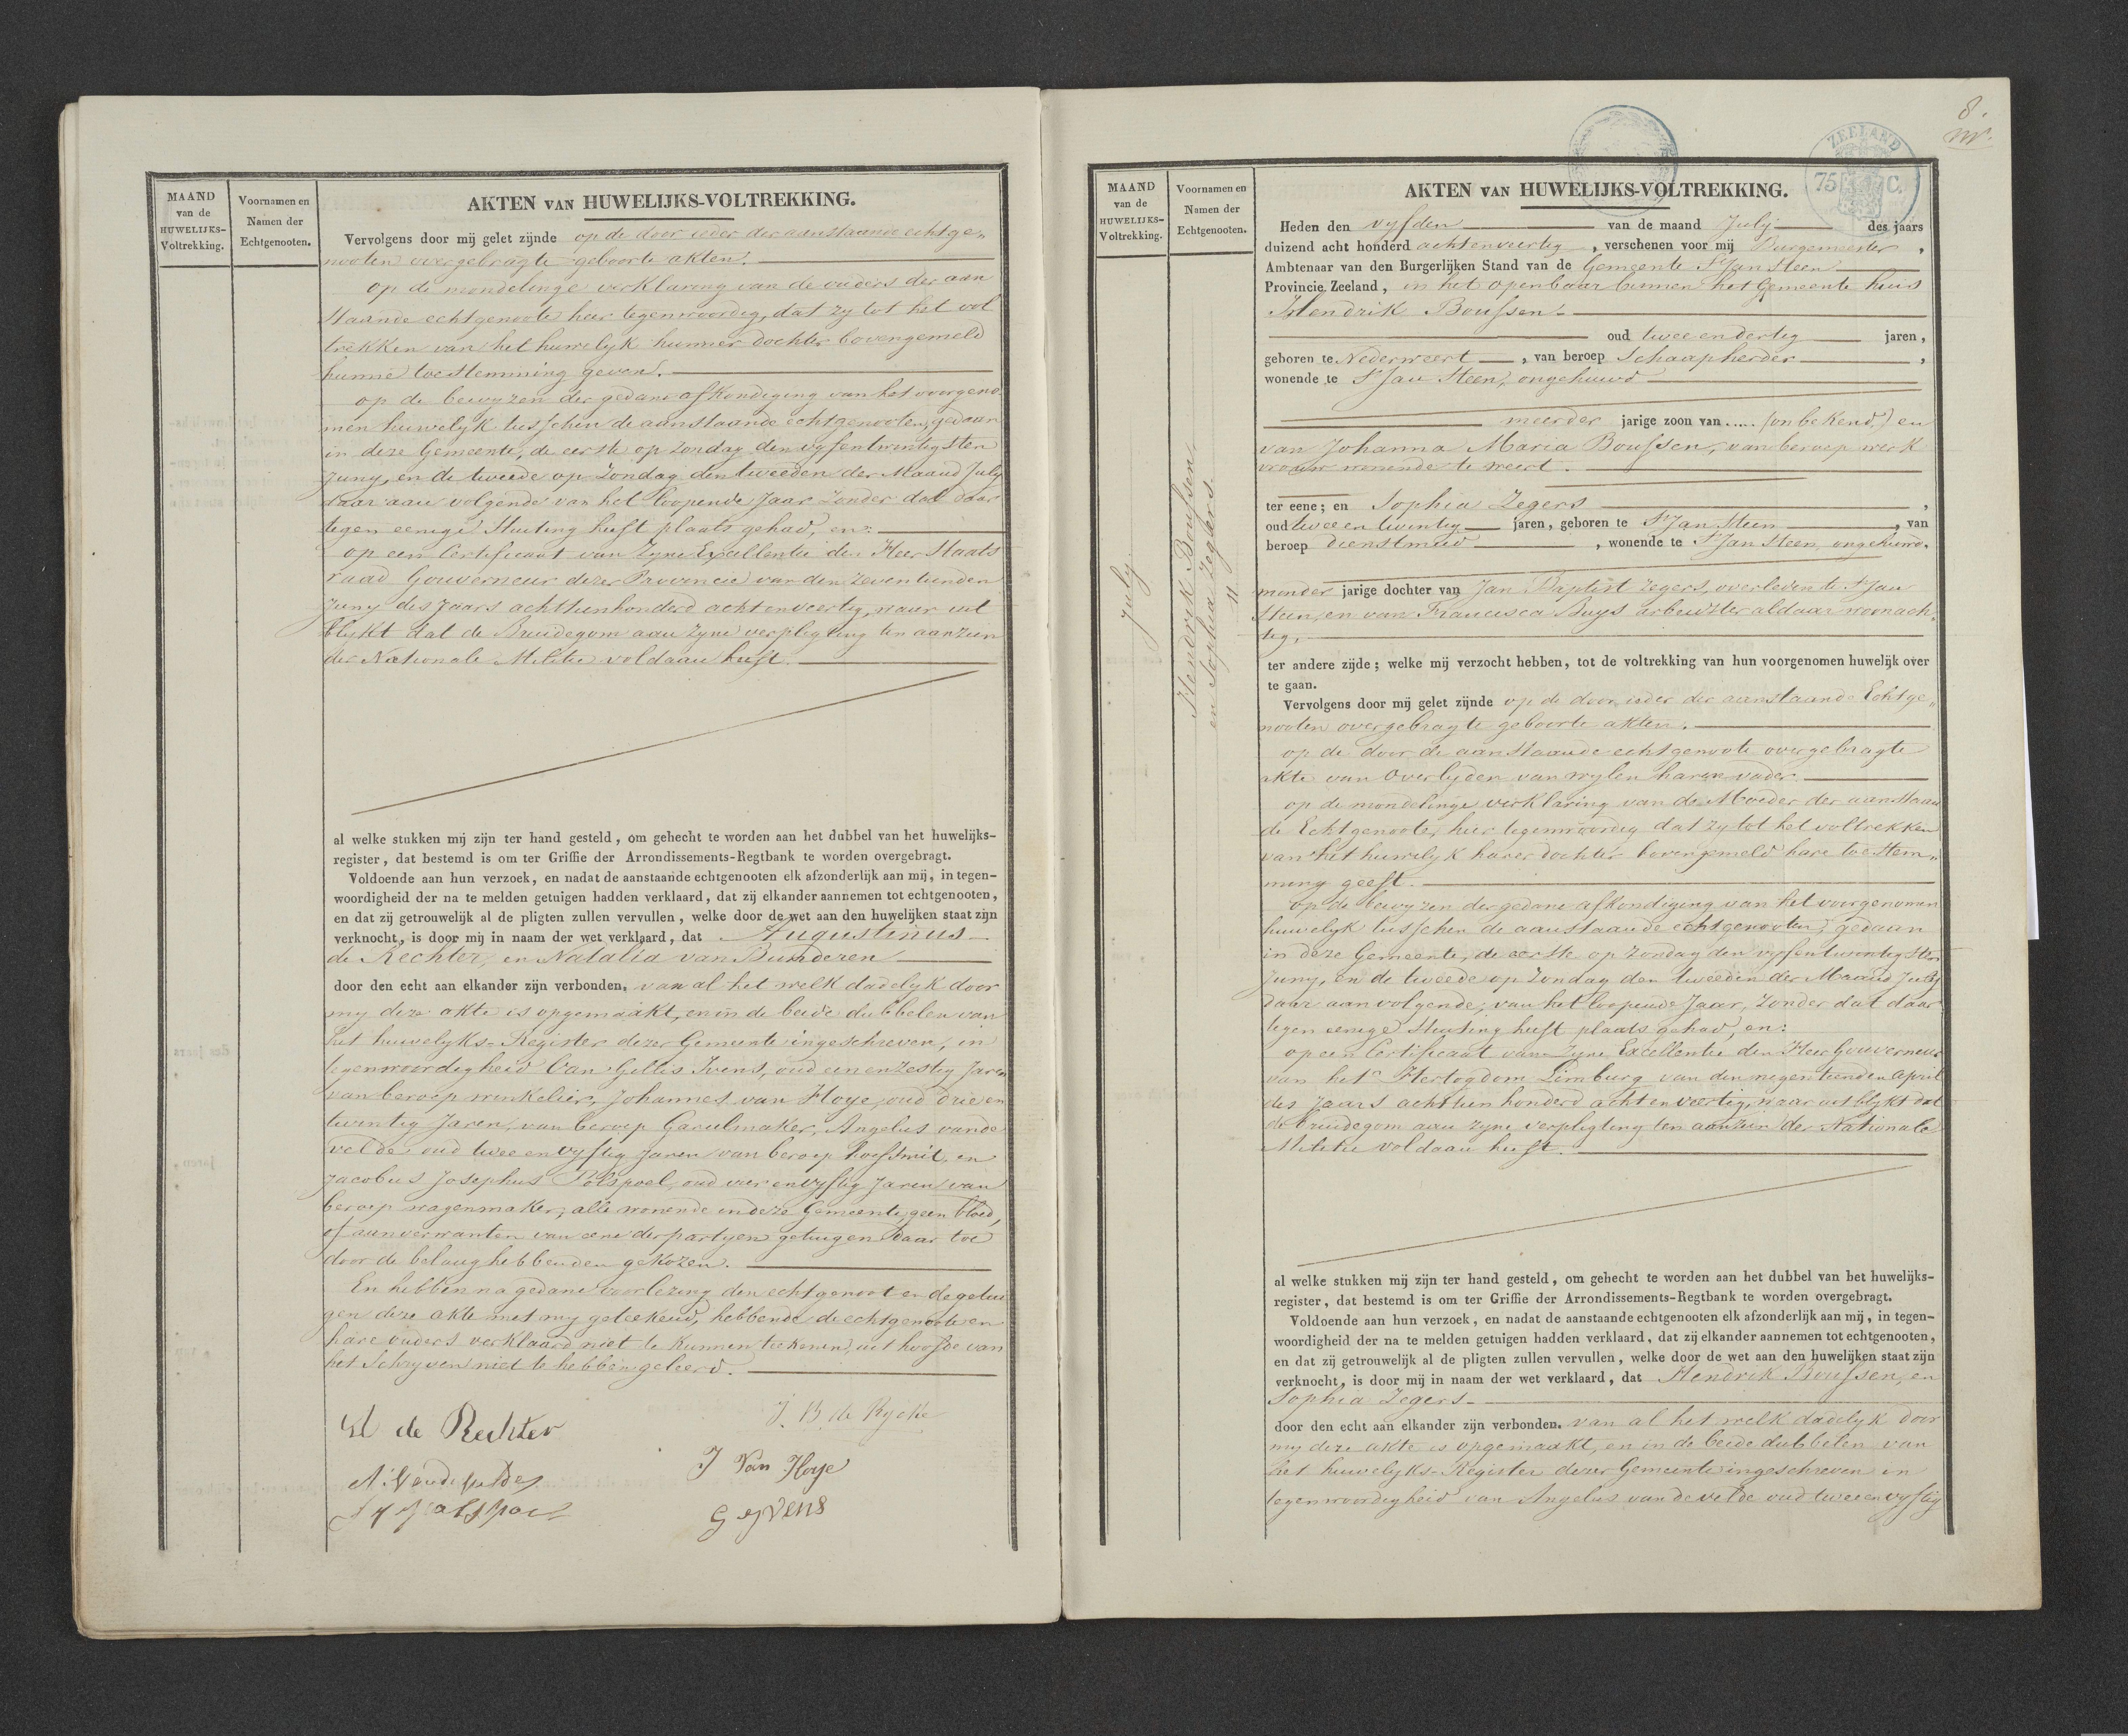 MAAND
van de
HUWELIJKS-
Voltrekking.
Voornamen en
Namen der
Echtgenooten.
AKTEN VAN HUWELIJKS-VOLTREKKING.
Vervolgens door mij gelet zijnde op de door ieder der aanstaande echtge„
nooten overgebragte geboorte akten.
op de mondelinge verklaring van de ouders der aan
staande echtgenoote hier tegenwoordig, dat zy tot het vol
trekken van het huwelyk hunner dochter bovengemeld
hunne toestemming geven.
op de bewyzen der gedane afkondiging van het voorgeno
men huwelyk tusschen de aanstaande echtgenooten, gedaan
in deze Gemeente, de eerste op zondag den vyfentwintigsten
Juny, en de tweede op Zondag den tweeden der Maand July
daar aan volgende van het loopende Jaar zonder dat daar
tegen eenige Stuiting heeft plaats gehad, en:
op een Certificaat van Zyne Excellentie den Heer Staats
raad Gouverneur dezer Provincie van den zeventienden
Juny des Jaars achttienhonderd achtenveertig, waar uit
blykt dat de Bruidegom aan zyne verpligting ten aanzien
der Nationale Militie voldaan heeft.
al welke stukken mij zijn ter hand gesteld, om gehecht te worden aan het dubbel van het huwelijks-
register, dat bestemd is om ter Griffie der Arrondissements-Regtbank te worden overgebragt.
Voldoende aan hun verzoek, en nadat de aanstaande echtgenooten elk afzonderlijk aan mij, in tegen-
woordigheid der na te melden getuigen hadden verklaard, dat zij elkander aannemen tot echtgenooten,
en dat zij getrouwelijk al de pligten zullen vervullen, welke door de wet aan den huwelijken staat zijn
verknocht, is door mij in naam der wet verklaard, dat Augustinus
de Rechter, en Natalia van Bunderen
door den echt aan elkander zijn verbonden. van al het welk dadelyk door
my deze akte is opgemaakt, en in de beide dubbelen van
het huwelyks-Register dezer Gemeente ingeschreven, in
tegenwoordigheid van Gillis Ivens, oud eenenzestig Jaren
van beroep winkelier, Johannes van Hoye, oud drieen
twintig Jaren, van beroep Gareelmaker, Angelus vande
velde, oud tweeenvyftig Jaren van beroep hoefsmit, en
Jacobus Josephus Polspoel, oud vierenvyftig Jaren van
beroep wagenmaker, alle wonende in deze Gemeente, geen bloed,
of aanverwanten van eene der partyen getuigen daar toe
door de belanghebbenden gekozen.
En hebben na gedane voorlezing den echtgenoot en de getui
gen deze akte met my geteekend, hebbende de echtgenoote en
hare ouders verklaard niet te kunnen teekenen, uit hoofde van
het Schryven niet te hebben geleerd.
de Rechter
J. B. de Rycke
A: Vandevelde
J Van Hoye
G yvens
MAAND
van de
HUWELIJKS-
Voltrekking.
July
Voornamen en
Namen der
Echtgenooten.
Hendrik Boussen
en Sophia Zegers.
11
8.
ZEELAND
75 C.
AKTEN VAN HUWELIJKS-VOLTREKKING.
Heden den vyfden van de maand July des jaars
duizend acht honderd achtenveertig, verschenen voor mij Burgemeester,
Ambtenaar van den Burgerlijken Stand van de Gemeente St Jan Steen
Provincie Zeeland, in het openbaar binnen het Gemeente huis
Hendrik Boussen
oud tweeendertig jaren,
geboren te Nederweert, van beroep Schaapherder,
wonende te St Jan Steen, ongehuwd
meerder jarige zoon van ..... (onbekend) en
van Johanna Maria Boussen, van beroep werk
vrouw wonende te weert.
ter eene; en Sophia Zegers,
oud tweeentwintig jaren, geboren te St Jan Steen, van
beroep dienstmeid, wonende te St Jan Steen ongehuwd.
minder jarige dochter van Jan Baptist Zegers, overleden te St Jan
Steen, en van Francisca Buys arbeidster aldaar woonach„
tig,
ter andere zijde; welke mij verzocht hebben, tot de voltrekking van hun voorgenomen huwelijk over
te gaan.
Vervolgens door mij gelet zijnde op de door ieder der aanstaande Echtge„
nooten overgebragte geboorte akten.
op de door de aanstaande echtgenoote overgebragte
akte van overlyden van wylen haren vader
op de mondelinge verklaring van de Moeder der aanstaan
de Echtgenoote, hier tegenwoordig dat zy tot het voltrekken
van het huwelyk harer dochter bovengemeld hare toestem„
ming geeft.
op de bewyzen der gedane afkondiging van het voorgenomen
huwelyk tusschen de aanstaande echtgenooten, gedaan
in deze Gemeente, de eerste op zondag den vyfentwintigsten
Juny, en de tweede op Zondag den tweeden der Maand July
daar aan volgende, van het loopende Jaar, zonder dat daar
tegen eenige Stuiting heeft plaats gehad, en:
op een Certificaat van Zyne Excellentie den Heer Gouverneur
van het Hertogdom Limburg van den negentienden April
des Jaars achttien honderd achtenveertig, waar uit blykt dat
de bruidegom aan zyne verpligting ten aanzien der Nationale
Militie voldaan heeft.
al welke stukken mij zijn ter hand gesteld, om gehecht te worden aan het dubbel van het huwelijks-
register, dat bestemd is om ter Griffie der Arrondissements-Regtbank te worden overgebragt.
Voldoende aan hun verzoek, en nadat de aanstaande echtgenooten elk afzonderlijk aan mij, in tegen-
woordigheid der na te melden getuigen hadden verklaard, dat zij elkander aannemen tot echtgenooten,
en dat zij getrouwelijk al de pligten zullen vervullen, welke door de wet aan den huwelijken staat zijn
verknocht, is door mij in naam der wet verklaard, dat Hendrik Boussen, en
Sophia Zegers
door den echt aan elkander zijn verbonden. van al het welk dadelyk door
my deze akte is opgemaakt, en in de beide dubbelen van
het huwelyks-Register dezer Gemeente ingeschreven in
tegenwoordigheid van Angelus vandevelde oud tweeenvyftig